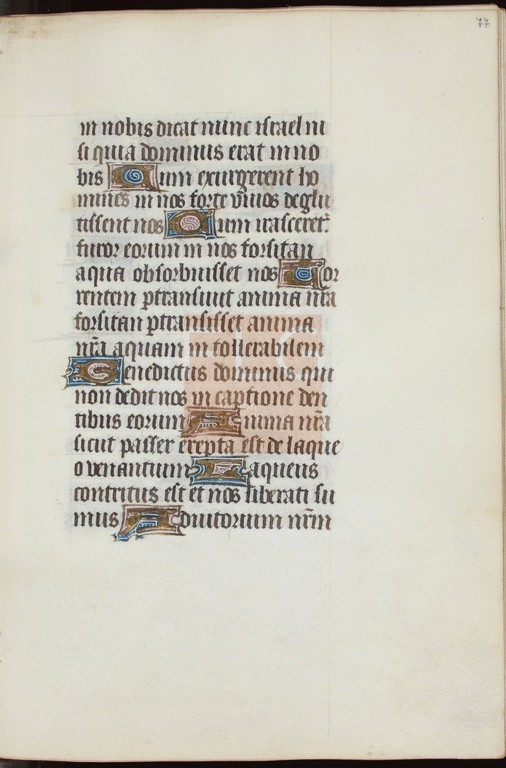 77
in nobis dicat nunc israel ni
si quia dominus erat in no
bis Cum exurgerent ho
mines in nos forte vivos deglu
tissent nos Cum irasceret᷑
furor eorum in nos forsitan
aqua obsorbuisset nos Tor
rentem ptransivit anima nr̃a
forsitan ptransisset anima
nr̃a aquam in tollerabilem
Benedictus dominus qui
non dedit nos in captione den
tibus eorum Anima nr̃a
sicut passer erepta est de laque
o venantium Laqueus
contritus est et nos liberati su
mus Adiutorium nr̃m